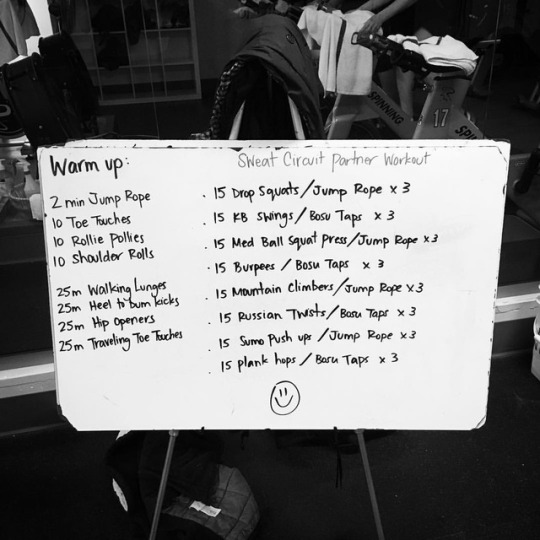 SPINNING
17
SPIN
Warm up:
2 min Jump Rope
10 Toe Touches
10 Rollie Pollies
10 Shoulder Rolls
25m Walking Lunges
25m Heel to bum kicks
25m Hip Openers
25m Traveling Toe Touches
Sweat Circuit Partner Workout
· 15 Drop Squats/Jump Rope x 3
· 15 KB Swings/Bosu Taps x 3
· 15 Med Ball Squat Press/Jump Rope x3
· 15 Burpees / Bosu Taps x 3
· 15 Mountain Climbers/Jump Rope x3
· 15 Russian Twists/Bosu Taps x 3
· 15 Sumo Push ups /Jump Rope x3
· 15 plank hops / Bosu Taps x 3